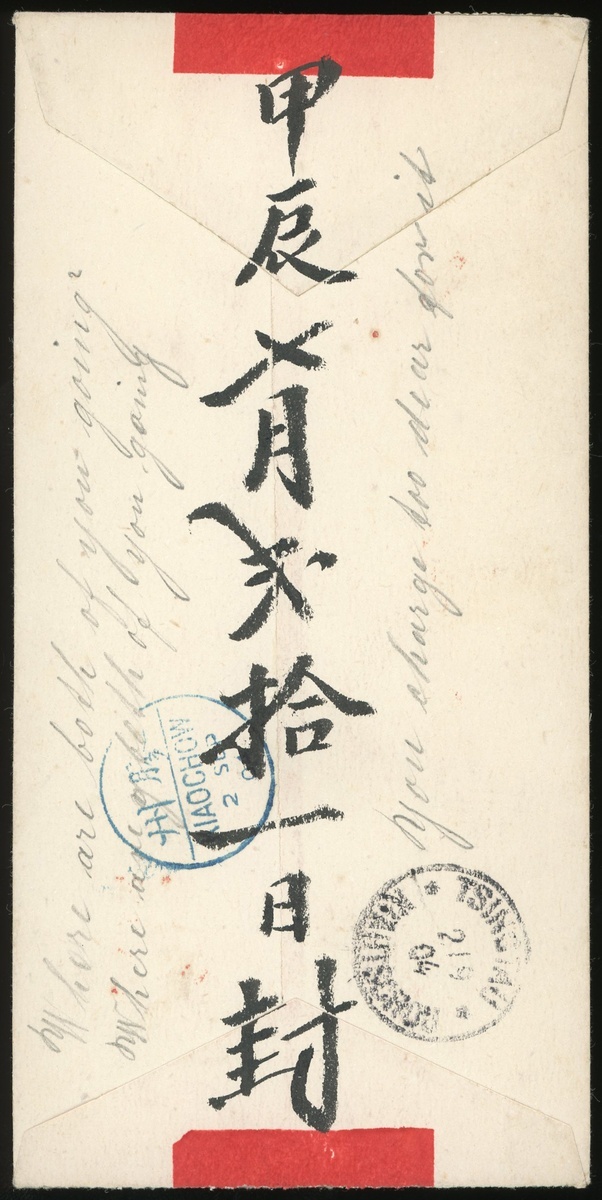 甲辰七月弍拾一日封
You charge too dear for it
Where are both of you going?
Where are both of you going
膠州
KIAOCHOW
2 SEP
TSINGTAU
2/9
04